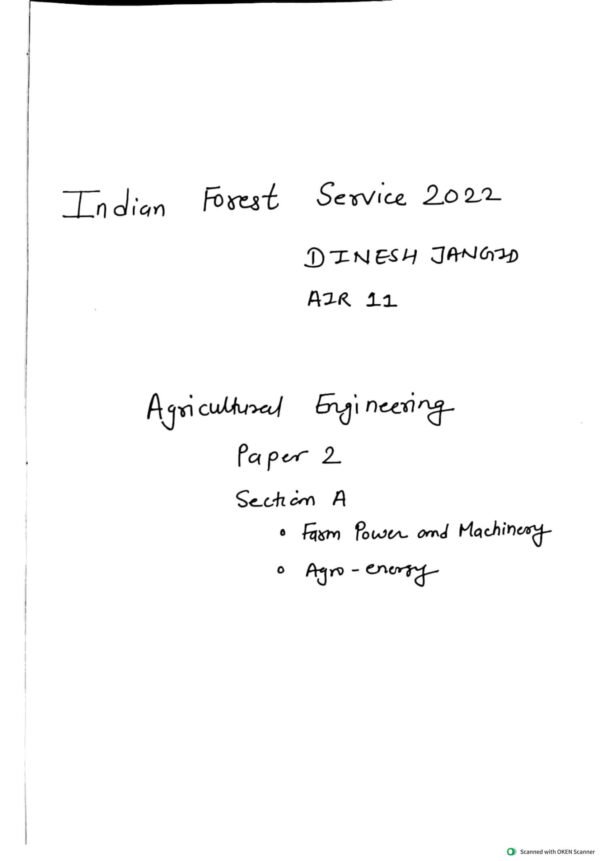 Indian Forest Service 2022
DINESH JANGID
AIR 11
Agricultural Engineering
Paper 2
Section A
• Farm Power and Machinery
• Agro-energy
Scanned with OKEN Scanner